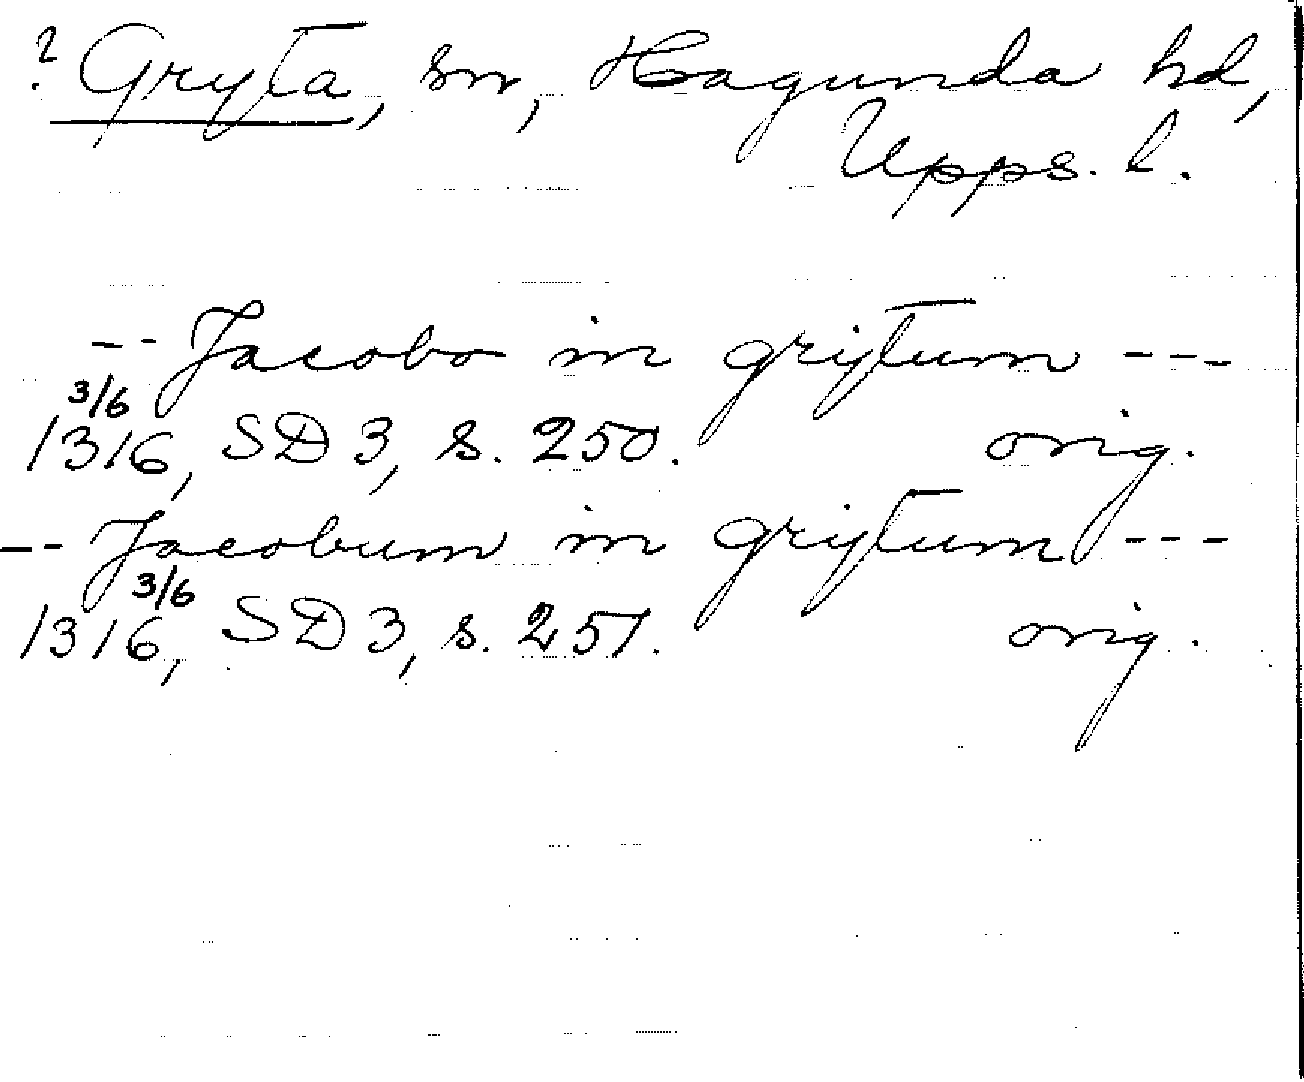 ? Gryta, sn, Hagunda hd,
Upps. l.
-- Jacobo in grytum ---
3/6
1316, SD 3, s. 250. orig.
-- Jacobum in grytum ---
3/6
1316, SD 3, s. 251. orig.